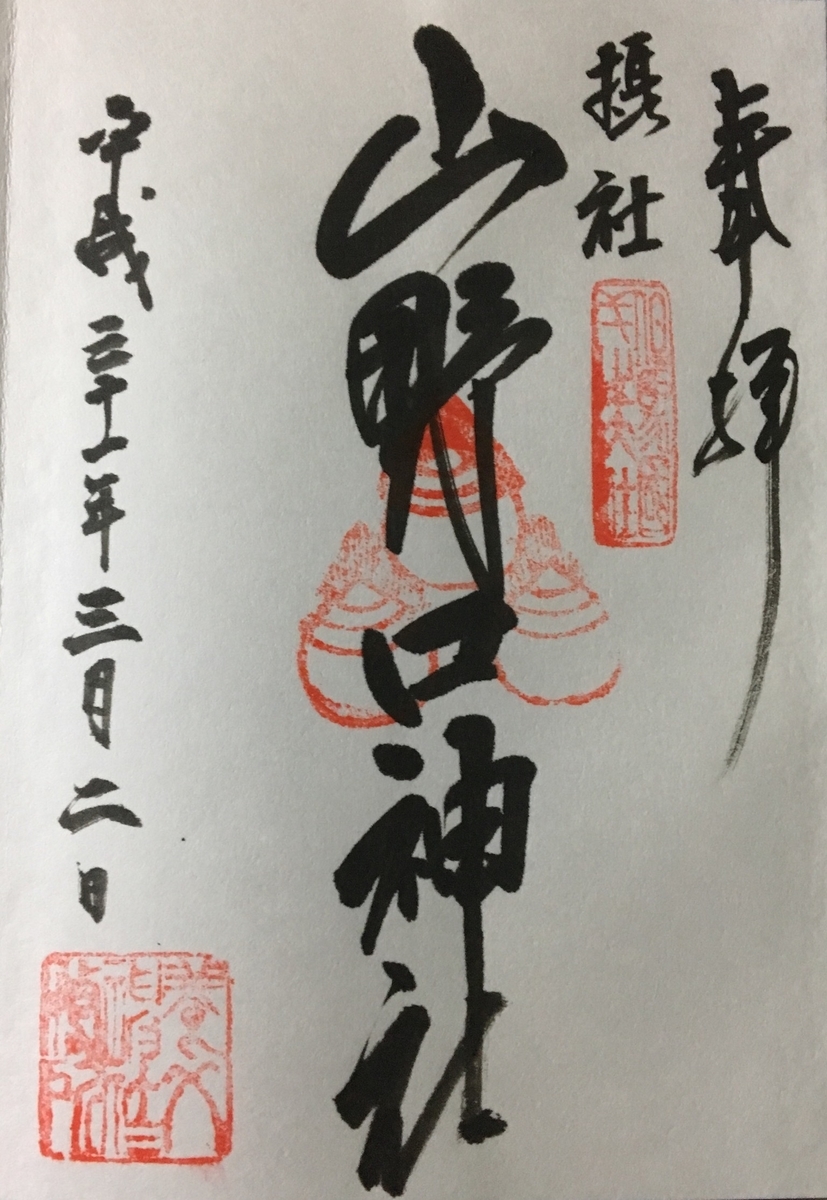 奉拝
摂社
山野口神社
平成三十一年三月二日